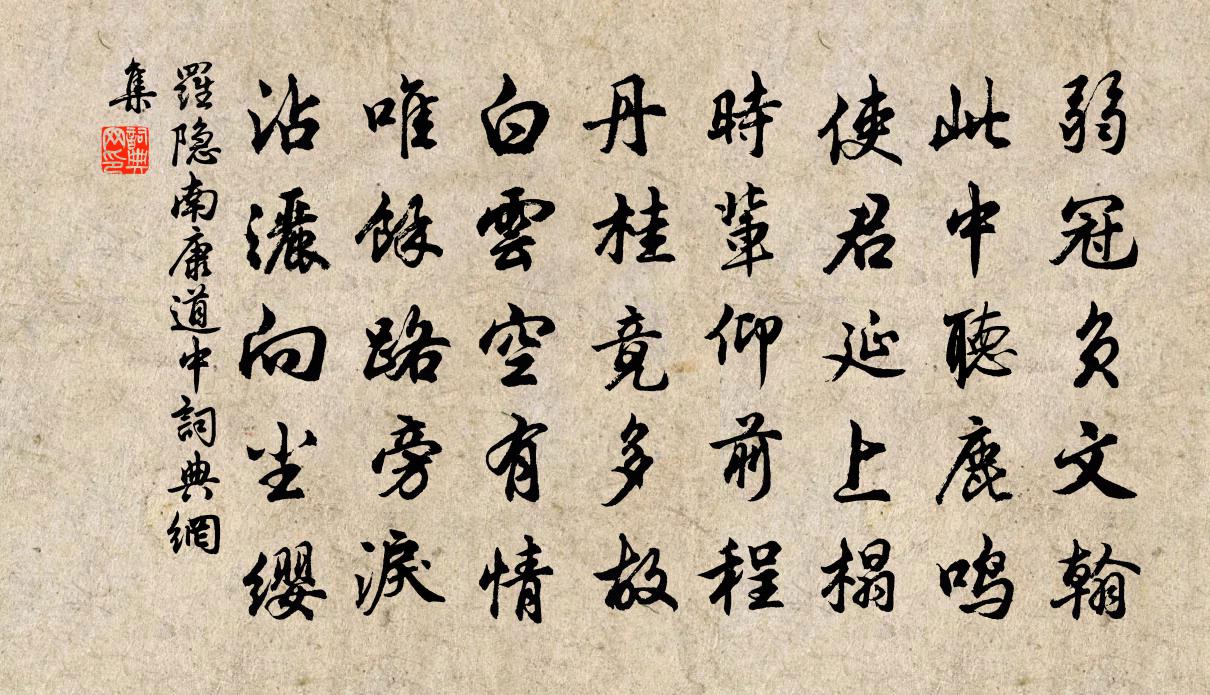 弱冠负文翰
此中聽鹿鸣
使君延上榻
時輩仰前程
丹桂竟多故
白雲空有情
唯餘路旁淚
沾灑向尘缨
羅隐南康道中詞典網
集
詞典网印